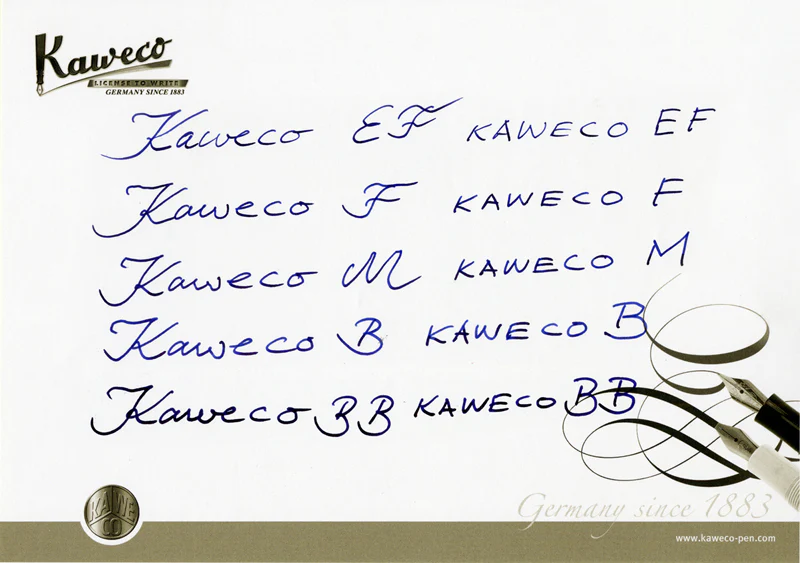 Kaweco
LICENSE TO WRITE
GERMANY SINCE 1883
Kaweco EF KAWECO EF
Kaweco F KAWECO F
Kaweco M KAWECO M
Kaweco B KAWECO B
Kaweco BB KAWECO BB
Germany since 1883
KAWE
CO
www.kaweco-pen.com